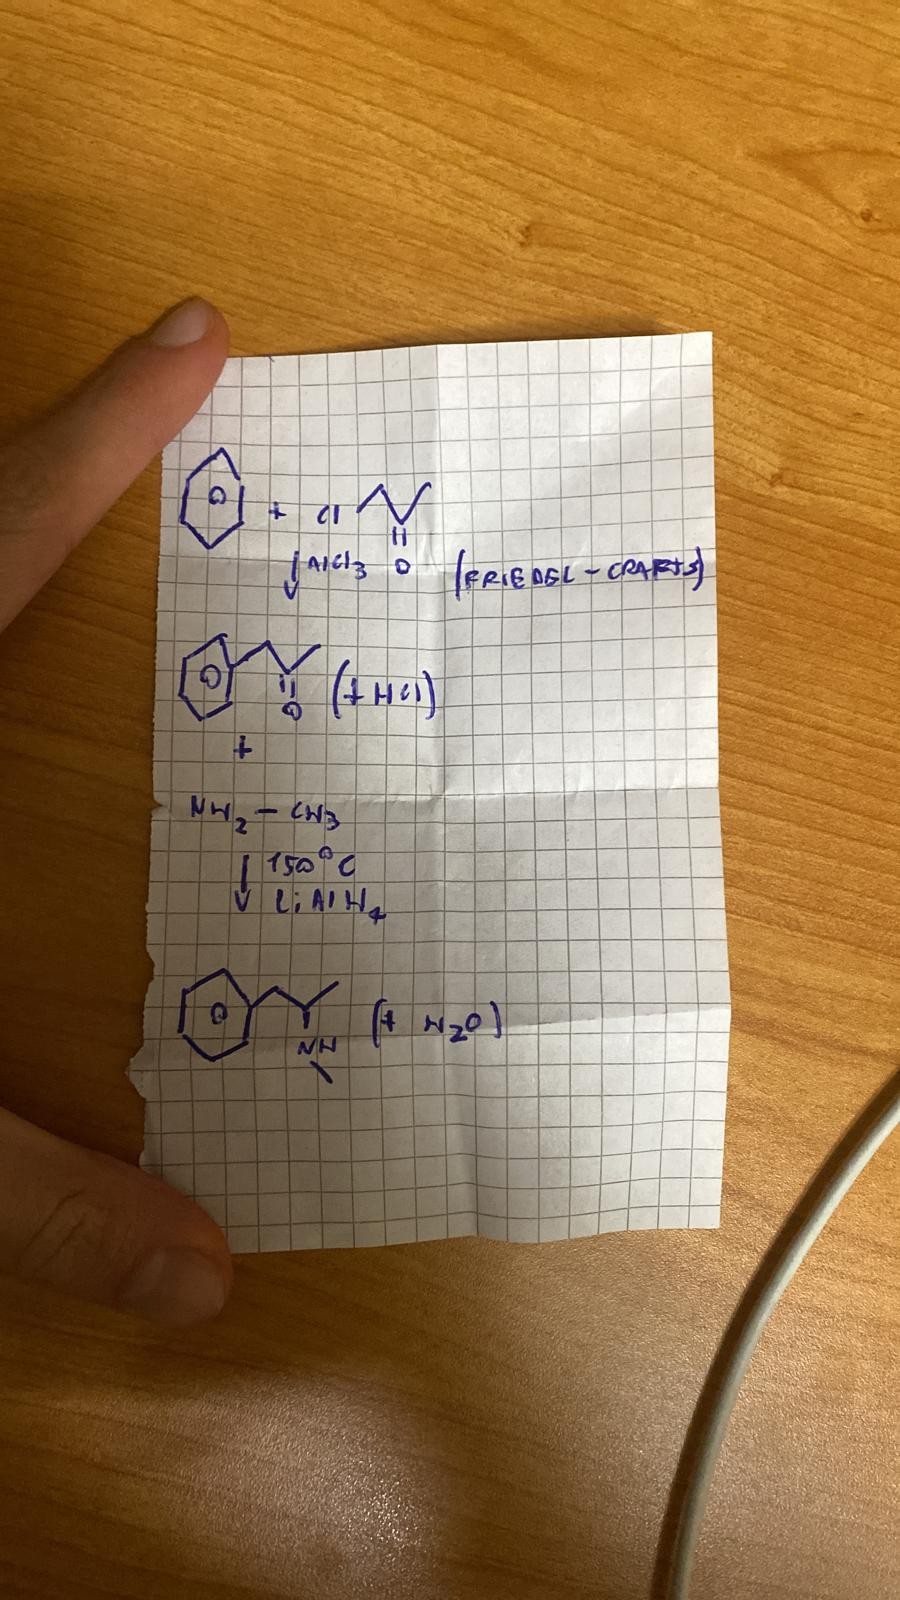 + Cl
O
AlCl3 (FRIEDEL-CRAFTS)
(+ HCl)
O
+
NH2 - CH3
150°C
LiAlH4
(+ H2O)
NH